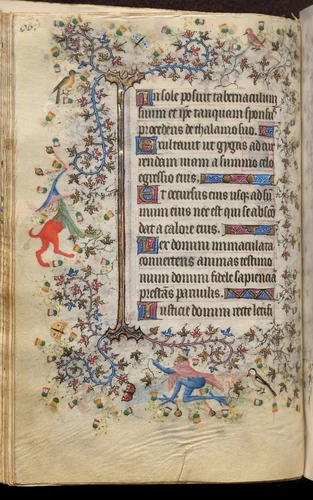 In sole posuit tabernaculum
suum et ipe tanquam sponsus
procedens de thalamo suo.
Exultauit ut gygas ad cur
rendam uiam a summo celo
egressio eius.
Et occursus eius usqz ad su
mum eius nec est qui se absco
dat a calore eius.
Lex domini immaculata
conuertens animas testimo
nium domini fidele sapiencia
prestans paruulis.
Iusticie domini recte letifi